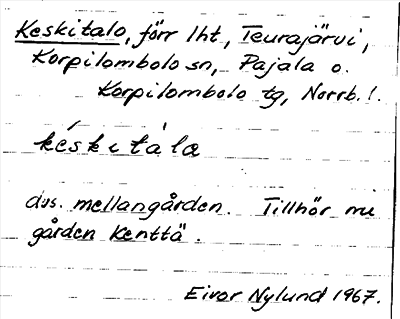 Keskitalo, förr lht, Teurajärvi,
Korpilombolo sn, Pajala o.
Korpilombolo tg, Norrb. l.
késkitàla
dvs. mellangården. Tillhör nu
gården Kenttä.
Eivor Nylund 1967.